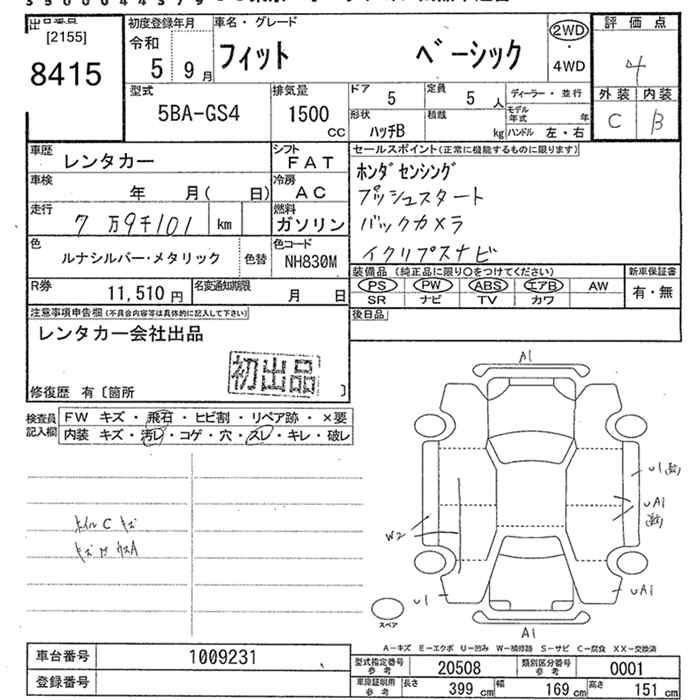 出品番号
[2155]
8415
初度登録年月
令和
5 9月
車名・グレード
フィット ベーシック
2WD
・
4WD
評価点
4
外装 内装
C B
型式
5BA-GS4
排気量
1500
CC
ドア
5
定員
5人
ディーラー・並行
形状
ハッチB
積載
kg
モデル年式 年
ハンドル 左・右
車歴
レンタカー
シフト
FAT
車検
年 月( 日)
冷房
AC
走行
7万9千101 km
燃料
ガソリン
色
ルナシルバー・メタリック
色替
色コード
NH830M
R券
11,510円
名変通知期限
月 日
セールスポイント(正常に機能するものに限ります)
ホンダセンシング
プッシュスタート
バックカメラ
イクリプスナビ
装備品(純正品に限り○をつけてください)
PS PW ABS エアB AW
SR ナビ TV カワ
新車保証書
有・無
後日品
注意事項申告欄(不具合内容等は具体的に記入して下さい)
レンタカー会社出品
初出品
修復歴 有〔箇所 〕
検査員記入欄
FW キズ・飛石・ヒビ割・リペア跡・×要
内装 キズ・汚レ・コゲ・穴・スレ・キレ・破レ
ホイルC キズ
A1
U1
UA1
W2
U1
UA1
A1
スペア
A-キズ E-エクボ U-凹み W-補修跡 S-サビ C-腐食 XX-交換済
車台番号
1009231
登録番号
型式指定番号
参考
20508
類別区分番号
参考
0001
車庫証明用
参考
長さ 399 cm 幅 169 cm 高さ 151 cm